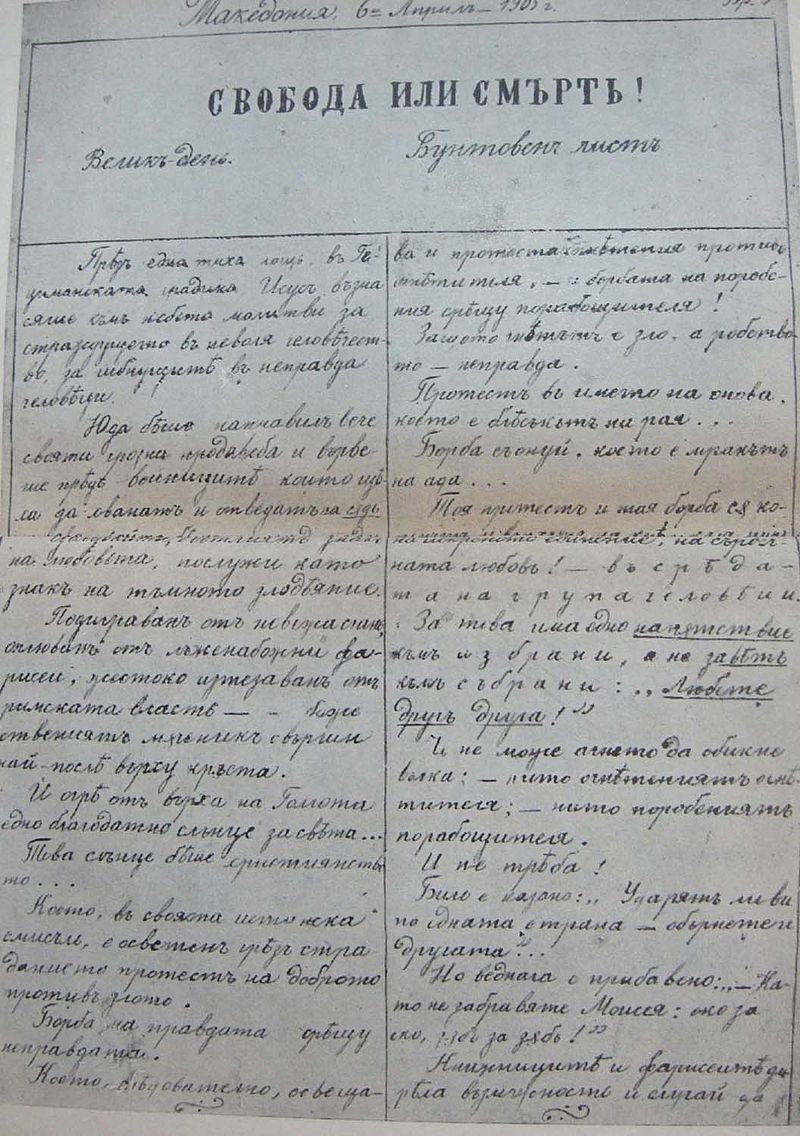 Македония, 6и Априлъ – 1903 г.
СВОБОДА ИЛИ СМЪРТЬ!
Великъ-день.
Бунтовенъ листъ
Прѣзъ една тиха нощь, въ Ге-
циманската градина Исусъ възна
сяше къмъ небето молитви за
страждущето въ неволя человѣчест-
во, за гибнущитѣ въ неправда
человѣци.
Юда бѣше направилъ вече
своята грозна продажба и върве-
ше прѣдъ войницитѣ които идѣ-
ха да хванатъ и отведатъ на съдъ
на любовьта, послужи като
знакъ на тъмното злодѣяние.
Подиграванъ отъ невежа
оплюванъ отъ лъженабожни фа-
рисеи, жестоко изтезаванъ отъ
римската власть – – боже
ствениятъ мѫченикъ свърши
най-послѣ върху кръста.
И огрѣ отъ върха на Голгота
едно благодатно слънце за свѣта...
Това слънце бѣше християнство
то...
Което, въ своята истинска
смисъль, е осветенъ чрѣзъ стра-
данието протестъ на доброто
противъ злото.
Борба на правдата срѣщу
неправдата.
Което, слѣдователно, освеща-
ва и протеста на гнѣтения против
гнѣтителя, – и борбата на поробе-
ния срѣщу поработителя!
Защото гнѣтътъ е зло, а робство-
то – неправда.
Протестъ въ името на онова,
което е блѣсъкътъ на рая...
Борба съ онуй, което е мракътъ
на ада...
Тоя протестъ и тая борба ся ко-
ната любовь! – въ срѣда-
та на група человѣци.
За това има едно напѫтствие
къмъ избрани, а не завѣтъ
къмъ събрани: „Любете
другъ друга!”
И не може агнето да обикне
вълка; – нито огнѣтениятъ гнѣ-
тителя; – нито поробениятъ
поработителя.
И не трѣба!
Било е казано: „Ударятъ ли ви
по едната страна – обърнете и
другата”...
Но веднага е прибавено: „– Ка-
то не забравяте Моисея: око за
око, зѫбъ за зѫбъ!”
Книжницитѣ и фарисеитѣ
възможность и случай да